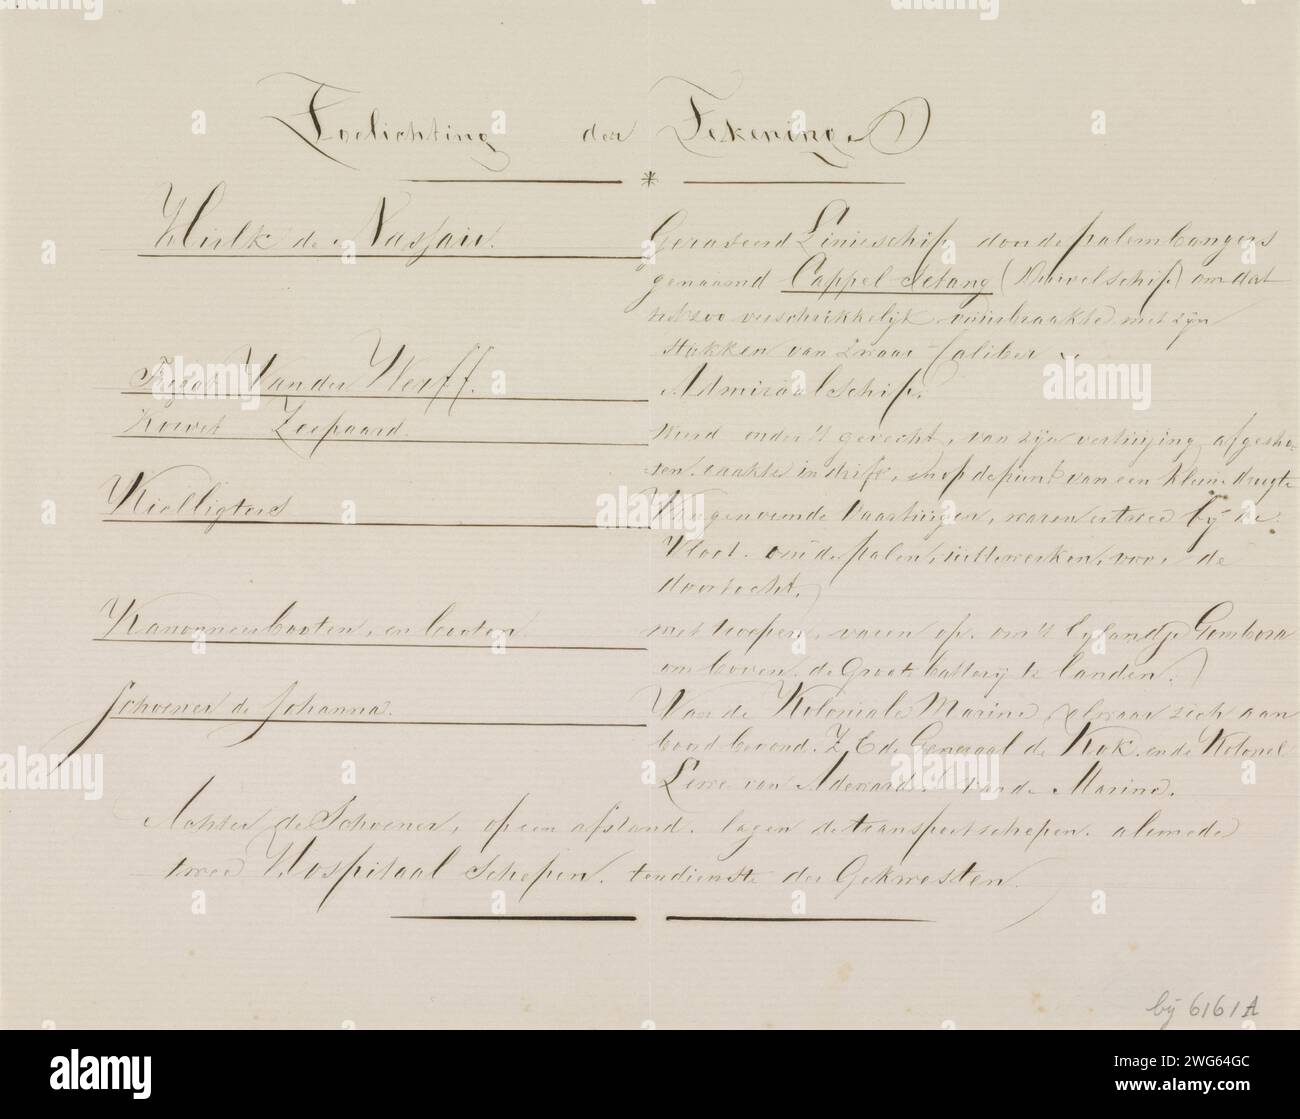 Toelichting der Tekening.
*
Hulk de Nassau.
Geraseerd Linieschip door de palembangers
genaamd Cappel Setang (Duivelschip) om dat
het zoo verschrikkelijk vuurbraakte met zijn
stukken van zwaar Caliber
Fregat Van der Werff.
Admiraal schip.
Korvet Zeepaard.
Werd onder 't gevecht, van zijn vertuijing afgescho-
ten. raakte in drift, en op de punt van een kleine droogte
Kielligters
Vorgenoemde Vaartuigen, waren er twee bij de
Vloot. om de palen, uittewerken, voor de
doortocht.
Kanonneerbooten, en booten
met troepen, varen op. om 't Eylandje Gombora
om boven de Groote battery te landen.
Schoener de Johanna.
Van de Koloniale Marine, alwaar zich aan
boord bevond. Z E de Generaal de Kok. en de Kolonel
Lewe van Adewaard. van de Marine.
Achter de Schoener, op een afstand. lagen de transportschepen. alsmede
twee Hospitaal schepen. ten dienste der Gekwesten.
bij 6161A
alamy
Image ID: 2WG64GC
www.alamy.com